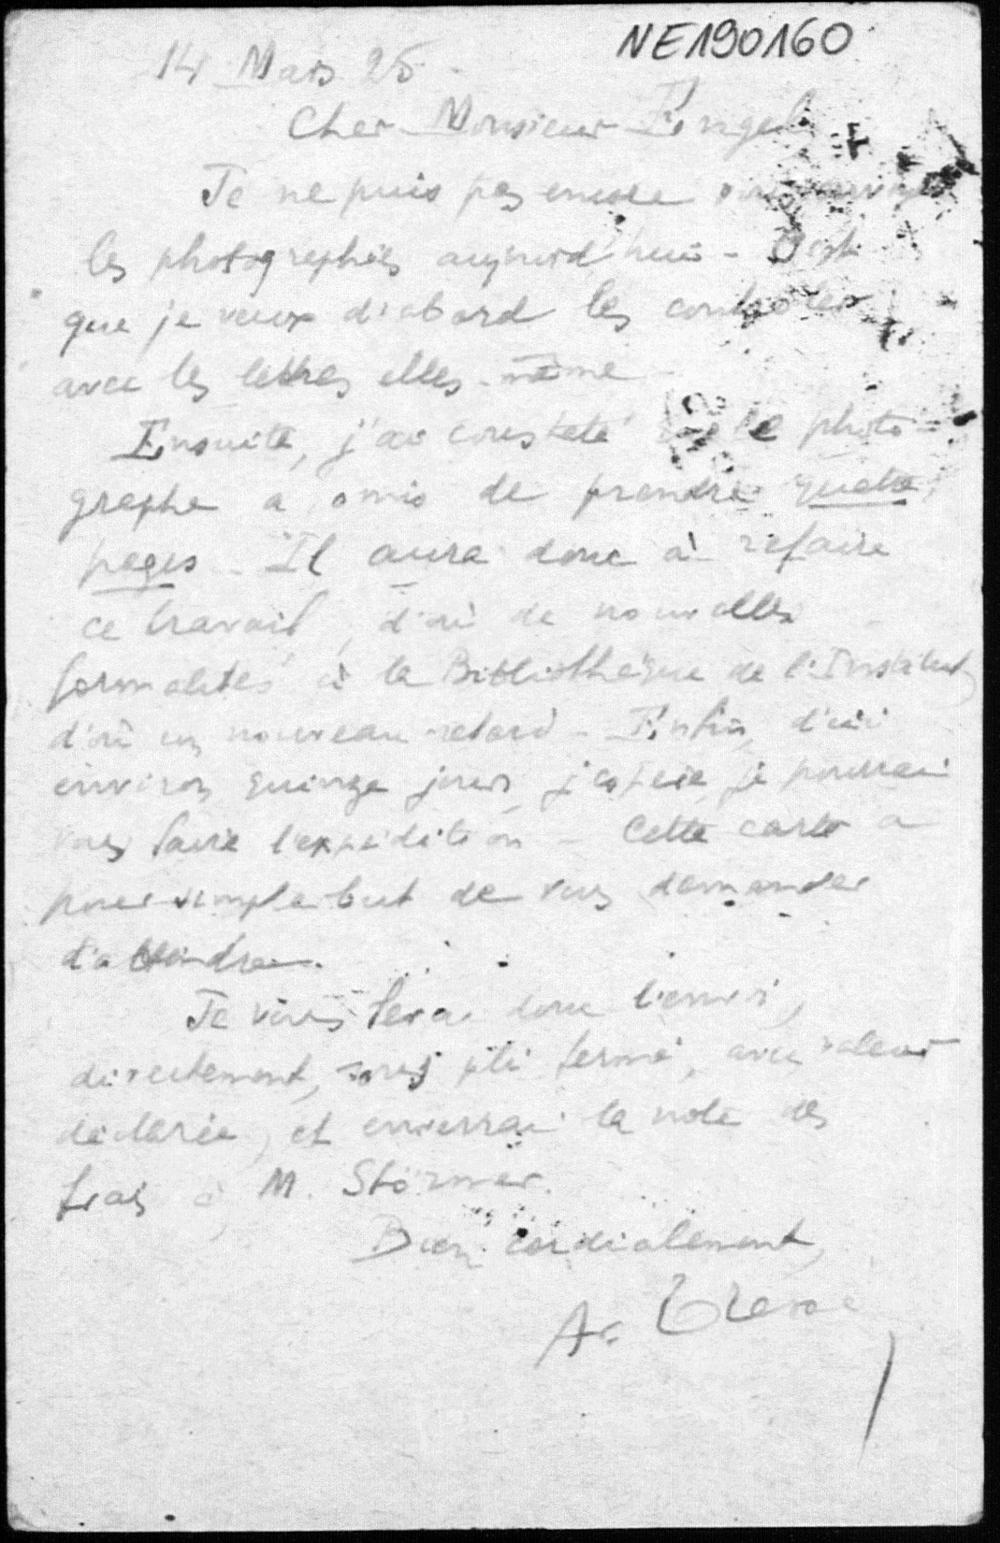 NE190160
14 Mars 25
Cher Monsieur Engel,
Je ne puis pas encore vous envoyer
les photographies aujourd'hui - C'est
que je veux d'abord les contrôler
avec les lettres elles-même
Ensuite, j'ai constaté que le photo-
graphe a omis de prendre quatre
pages - Il aura donc à refaire
ce travail, d'où de nouvelles
formalités à la Bibliothèque de l'Institut,
d'où un nouveau retard - Enfin, d'ici
environ quinze jours, j'espère, je pourrai
vous faire l'expédition - Cette carte a
pour simple but de vous demander
d'attendre.
Je vous ferai donc l'envoi,
directement, sous pli fermé, avec valeur
déclarée, et enverrai la note des
frais à M. Störmer.
Bien cordialement,